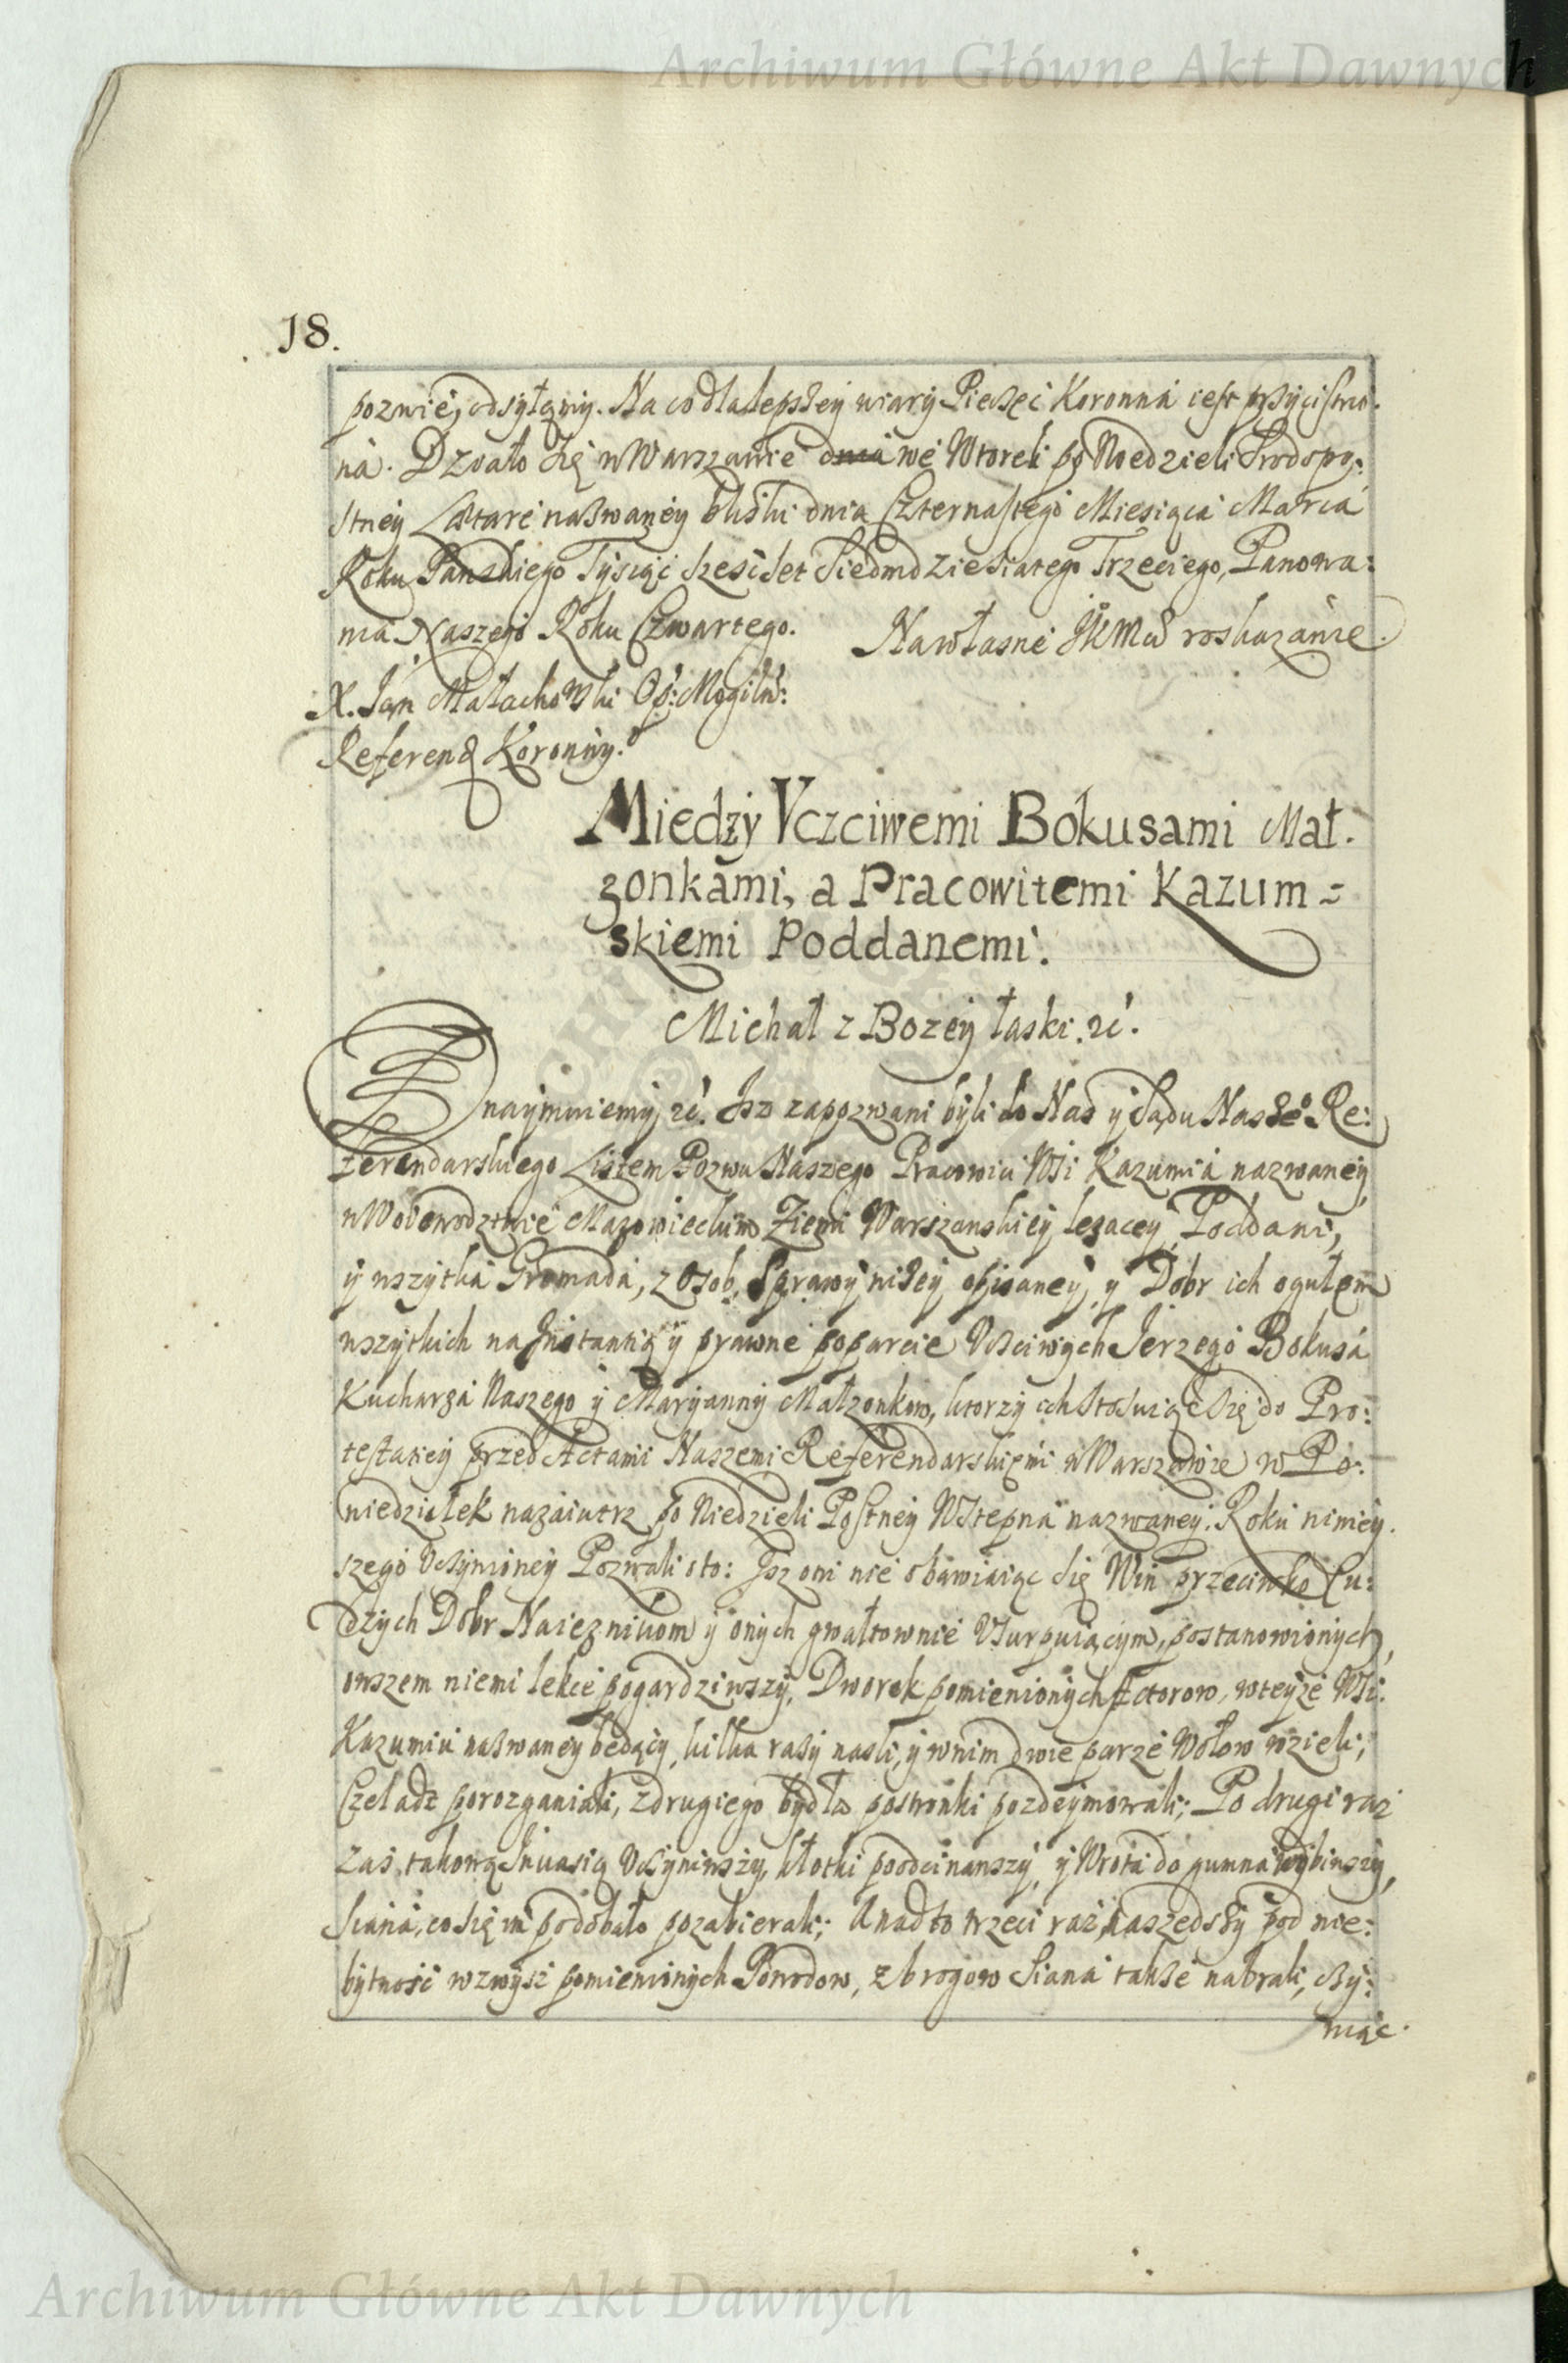 Archiwum Główne Akt Dawnych
18.
pozwie, odsyłamy. Na co dla lepszey wiary Pieczęć Koronná iest przyciśnio:
ná. Działo się w Warszawie dniá wé Wtorek po Niedzieli Srodopo:
stnéy Lætaré nazwanéy blisko dnia Czternastégo Miesiącá Marca
Roku Panskiego Tysiąc szescset Siedmdziesiatego Trzeciego, Panowa:
nia Naszego Roku Czwartego. Na własné JKMci roskazánie.
X. Ján Małachowski Op: Mogiln:
Referend Koronny.
Miedzy Vczciwemi Bokusami Mał.
zonkámi, a Pracowitemi Kazum=
skiemi Poddanemi.
Michał z Bozey łaski. ꝛć.
Znaymuiemy, ꝛć. Isz zapozwani byli do Nas y Sądu Naszeº Re:
ferendarskiego Listem Pozwu Naszego Pracowici Wsi Kazumiá nazwaney
w Woiewodztwie Mazowieckim Ziemi Warszawskiey lezacey, Poddani,
y wszytká Gromadá, z Osob, Sprawy nizey opisaney, y Dobr ich ogułem
wszytkich na Instantią y prawné poparcie Vczciwych Jerzegó Bokusá
Kucharzá Naszego y Maryanny Małzonkow, ktorzy ich stosuiąc się do Pro:
testatiey przed Actami Naszemi Referendarskiemi w Warszawie w Po:
niedziałek nazaiutrz po Niedzieli Postney Wstepná nazwaney. Roku niniey.
szego Vczynioney Pozwali o to: Isz oni nie obawiaiąc się Win przeciwko Cu:
dzych Dobr Naieznikom y onych gwałtownie Vsurpuiącym, postanowionych,
owszem niemi lekce pogardziwszy, Dworek pomienionych Actorow, w teyze Wsi
Kazumiu nazwaney bedący, kilka razy naszli, y w nim dwie parze Wołow wzieli;
Czeladz porozganiali, z drugiego bydła postronki pozdeymowali; Po drugi raz
zaś, takową Inuasią Vczyniwszy, kłotki poodcinawszy, y Wrota do gumna wybiwszy,
Siana, co się im podobało pozabierali; A nad to trzeci raz naszedszy pod nie:
bytność wzwysz pomienionych Powodow, z brogow Siana takze nabrali, czy:
niąc.
Archiwum Główne Akt Dawnych